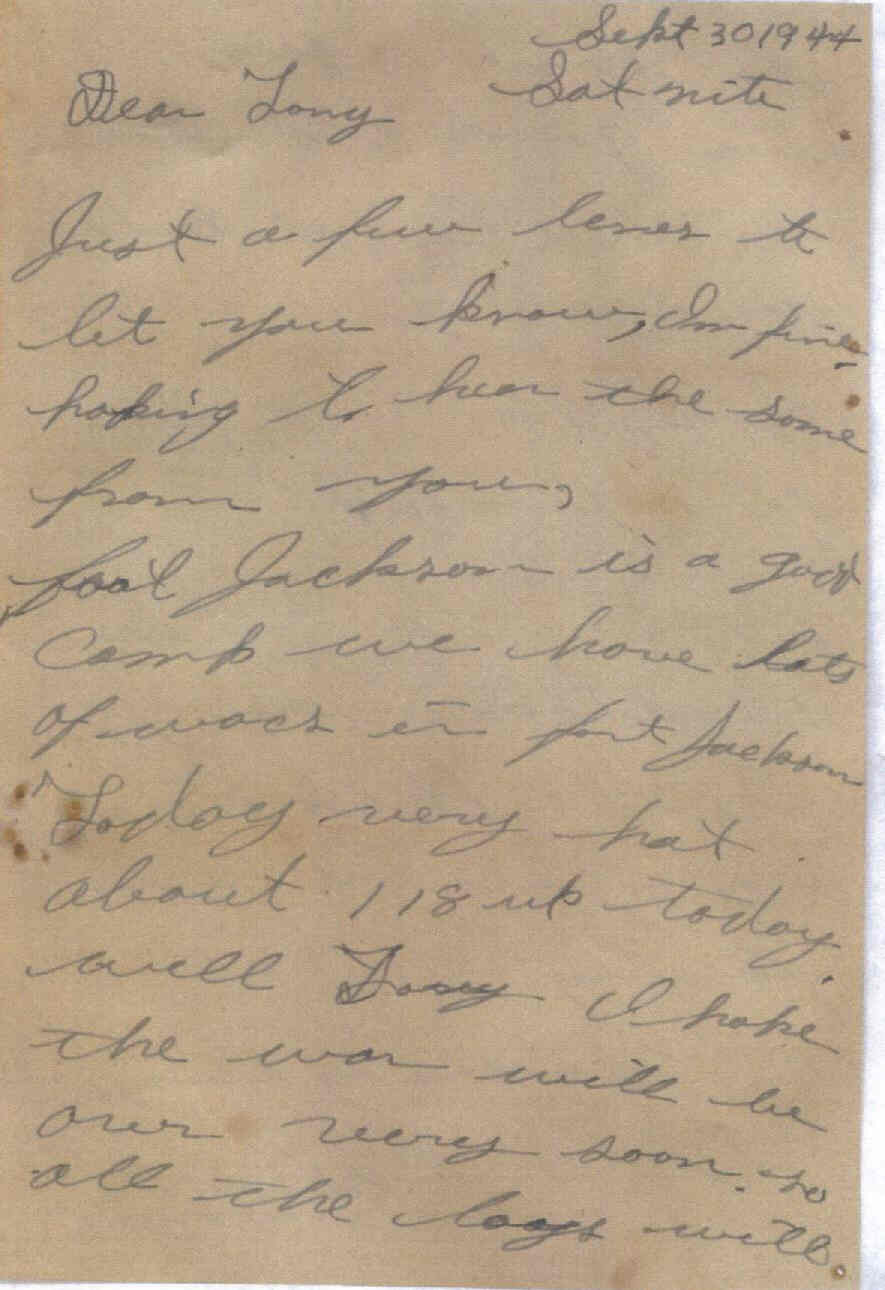 Sept 30 1944
Dear Tony Sat nite
Just a few lines to
let you know, Im fine
hoping to hear the same
from you,
foot Jackson is a good
Camp we have lots
of wacs in fort Jackson
Today very hot
about 118 up today.
well Tony I hope
the war will be
over very soon. so
all the boys will